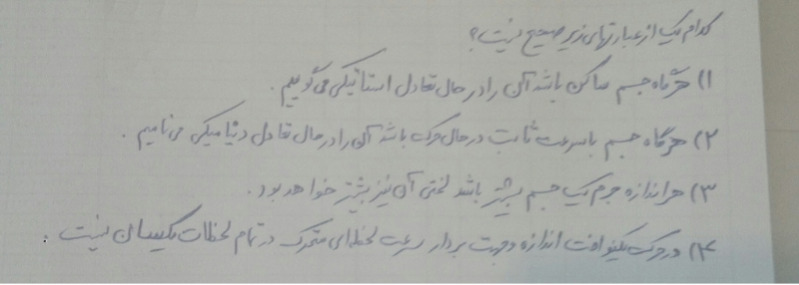 کدام یک از عبارتهای زیر صحیح نیست؟
۱) هرگاه جسم ساکن باشد آن را در حال تعادل استاتیکی می گوییم.
۲) هرگاه جسم با سرعت ثابت در حال حرکت باشد آن را در حال تعادل دینامیکی می نامیم.
۳) هر اندازه جرم یک جسم بیشتر باشد لختی آن نیز بیشتر خواهد بود.
۴) در حرکت یکنواخت اندازه و جهت بردار سرعت لحظه‌ای متحرک در تمام لحظات یکسان نیست.